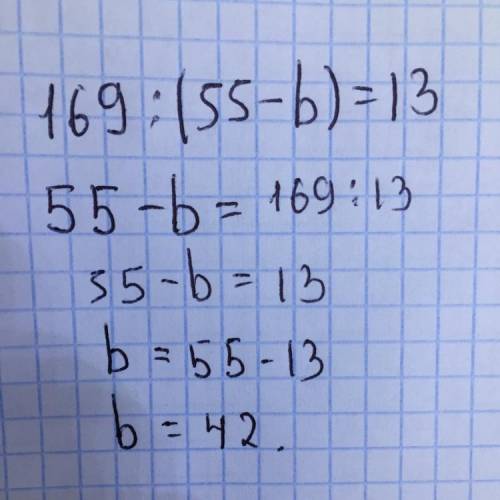 169:(55-b)=13
55-b=169:13
55-b=13
b=55-13
b=42.